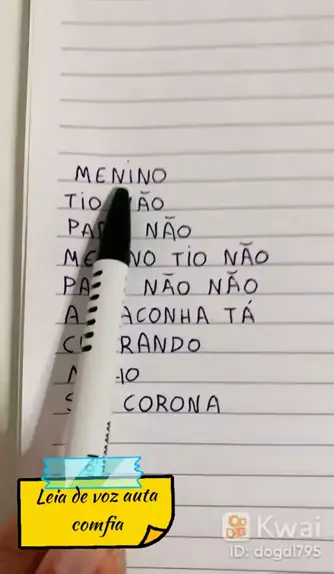 MENINO
TIO NÃO
NÃO
MENINO TIO NÃO
NÃO NÃO
A MACONHA TÁ
CORONA
Leia de voz auta
comfia
Kwai
ID: dogdl795